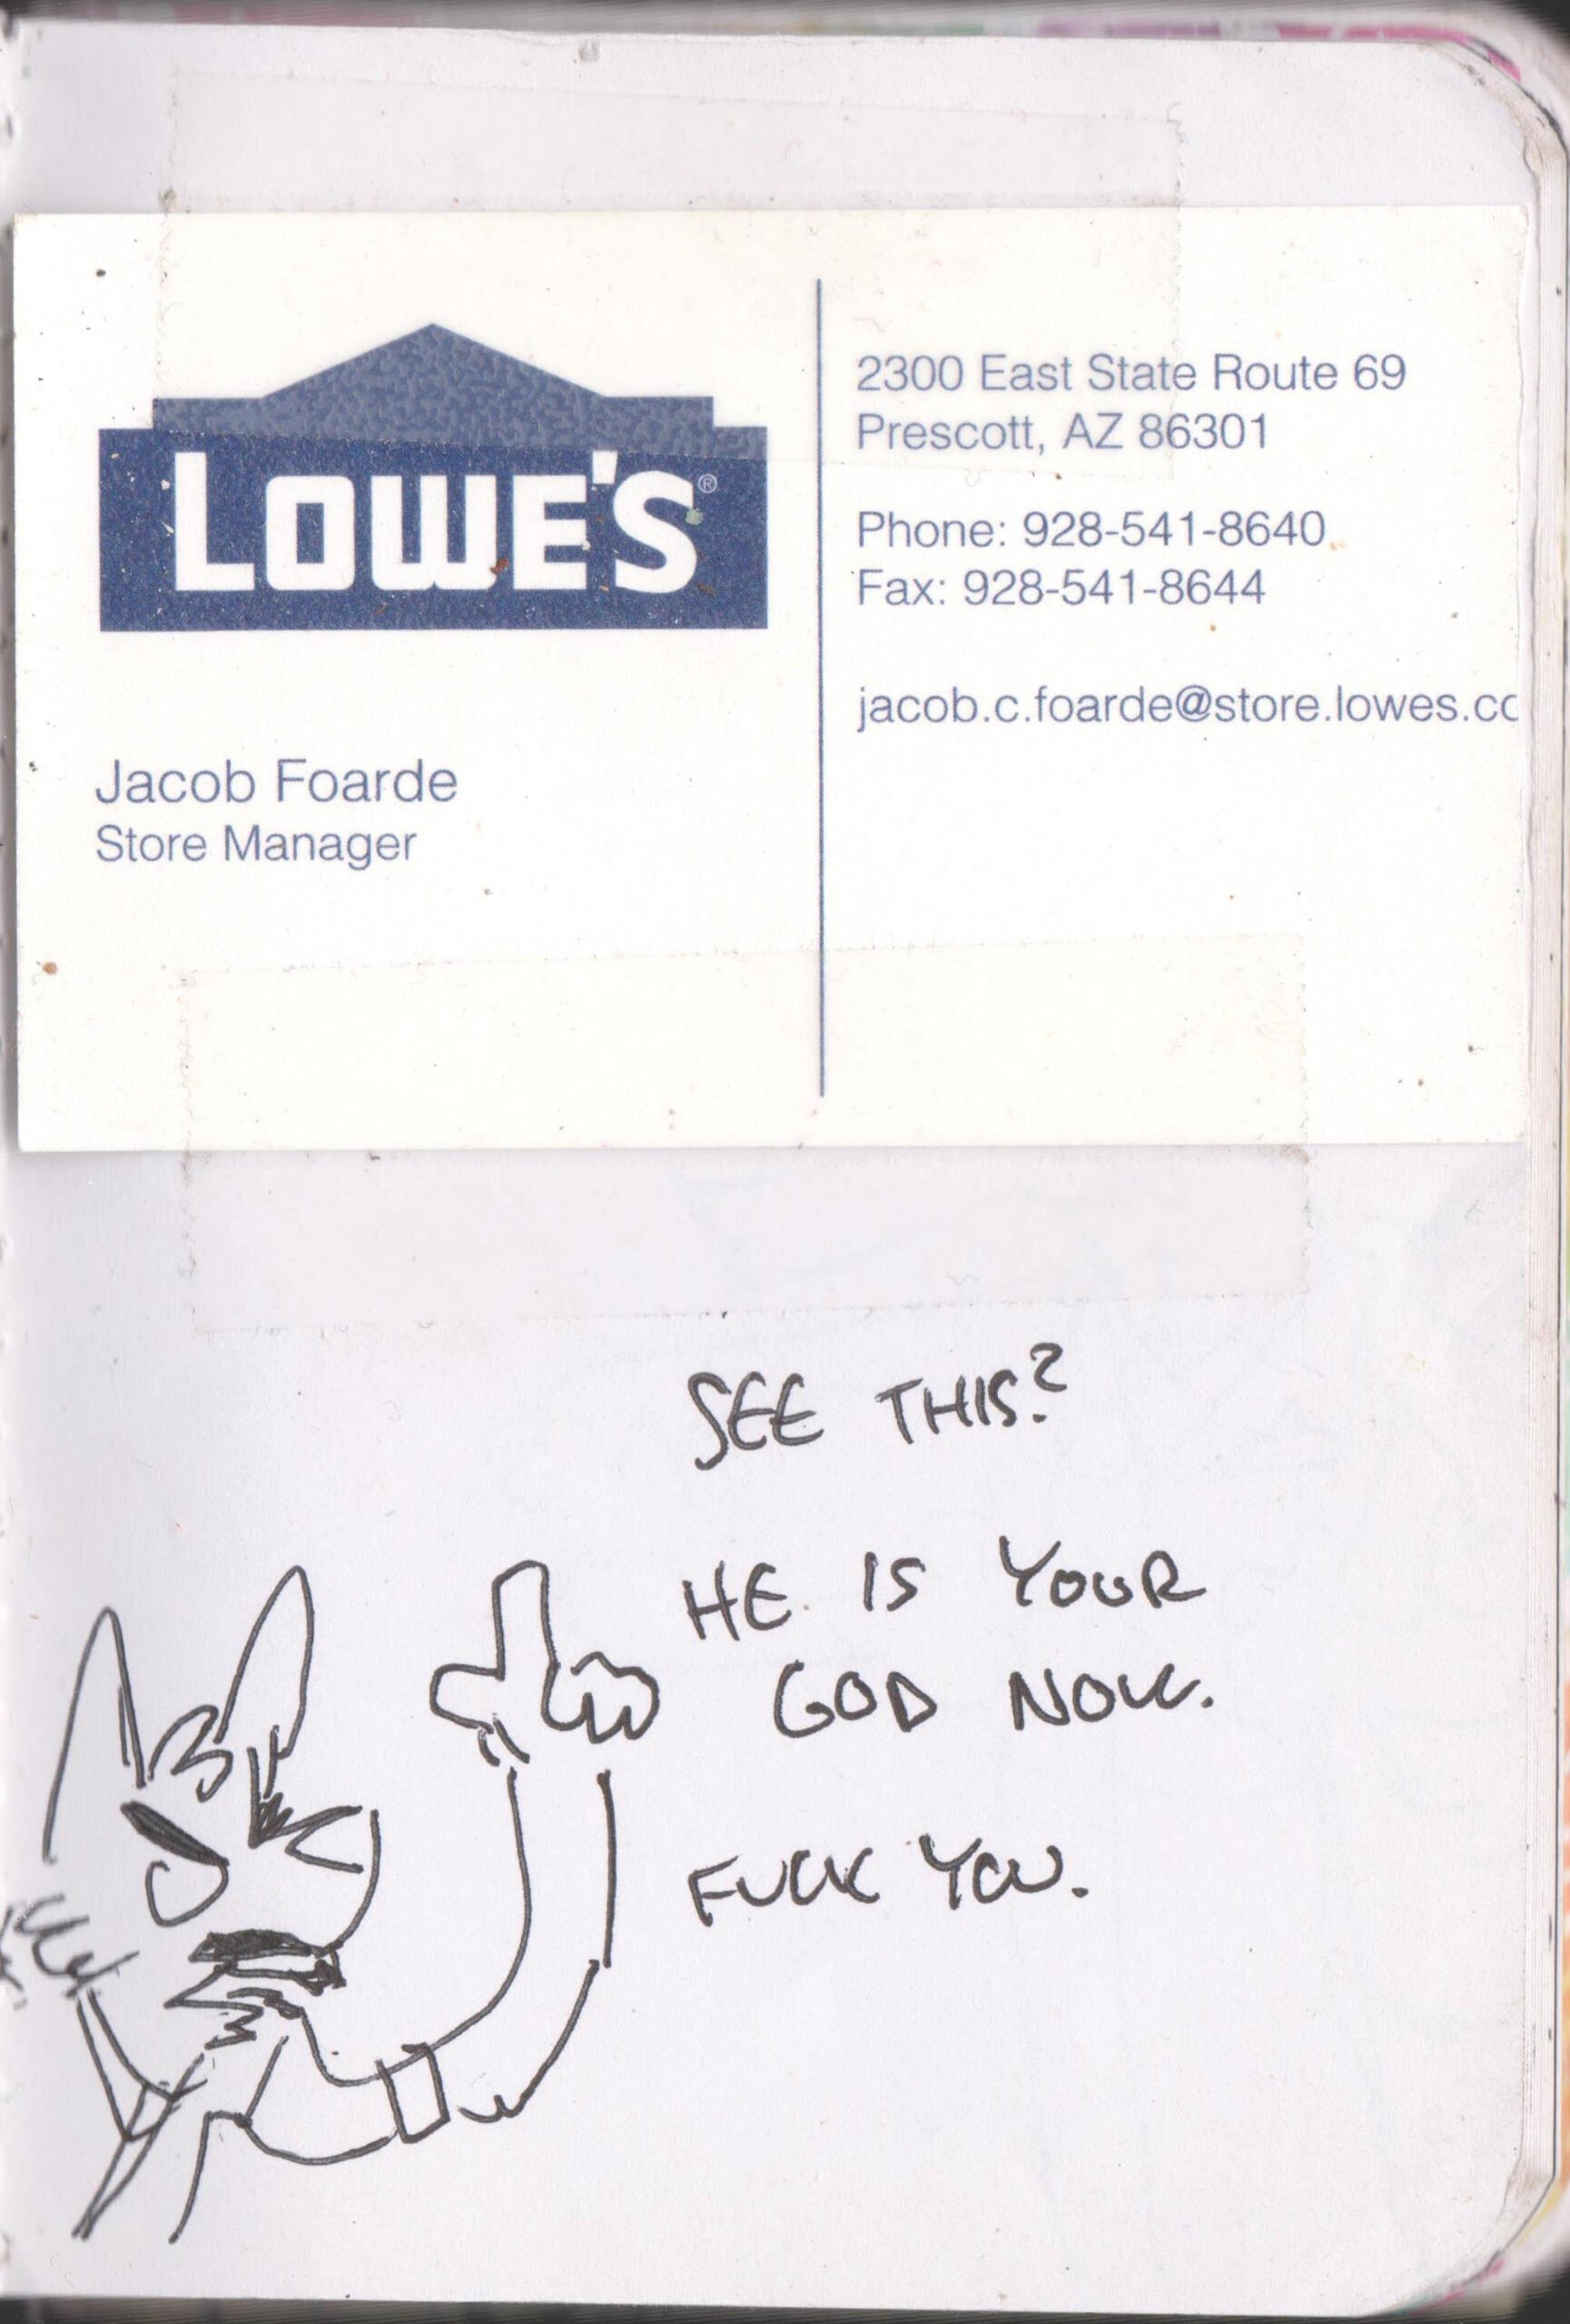 LOWE'S®
Jacob Foarde
Store Manager
2300 East State Route 69
Prescott, AZ 86301
Phone: 928-541-8640
Fax: 928-541-8644
jacob.c.foarde@store.lowes.cc
SEE THIS?
HE IS YOUR
GOD NOW.
FUCK YOU.